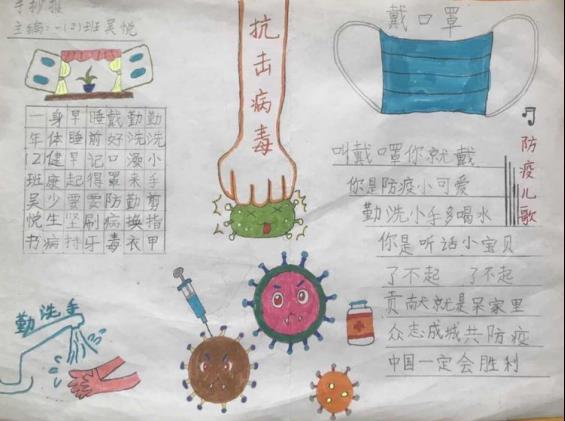 手抄报
主编:一(2)班吴悦
抗击病毒
戴口罩
勤洗小手剪指甲
勤洗澡来勤换衣
戴好口罩防病毒
睡前记得需刷牙
早睡早起要坚持
身体健康少生病
一年(2)班吴悦书
防疫儿歌
叫戴口罩你就戴
你是防疫小可爱
勤洗小手多喝水
你是听话小宝贝
了不起 了不起
贡献就是呆家里
众志成城共防疫
中国一定会胜利
勤洗手